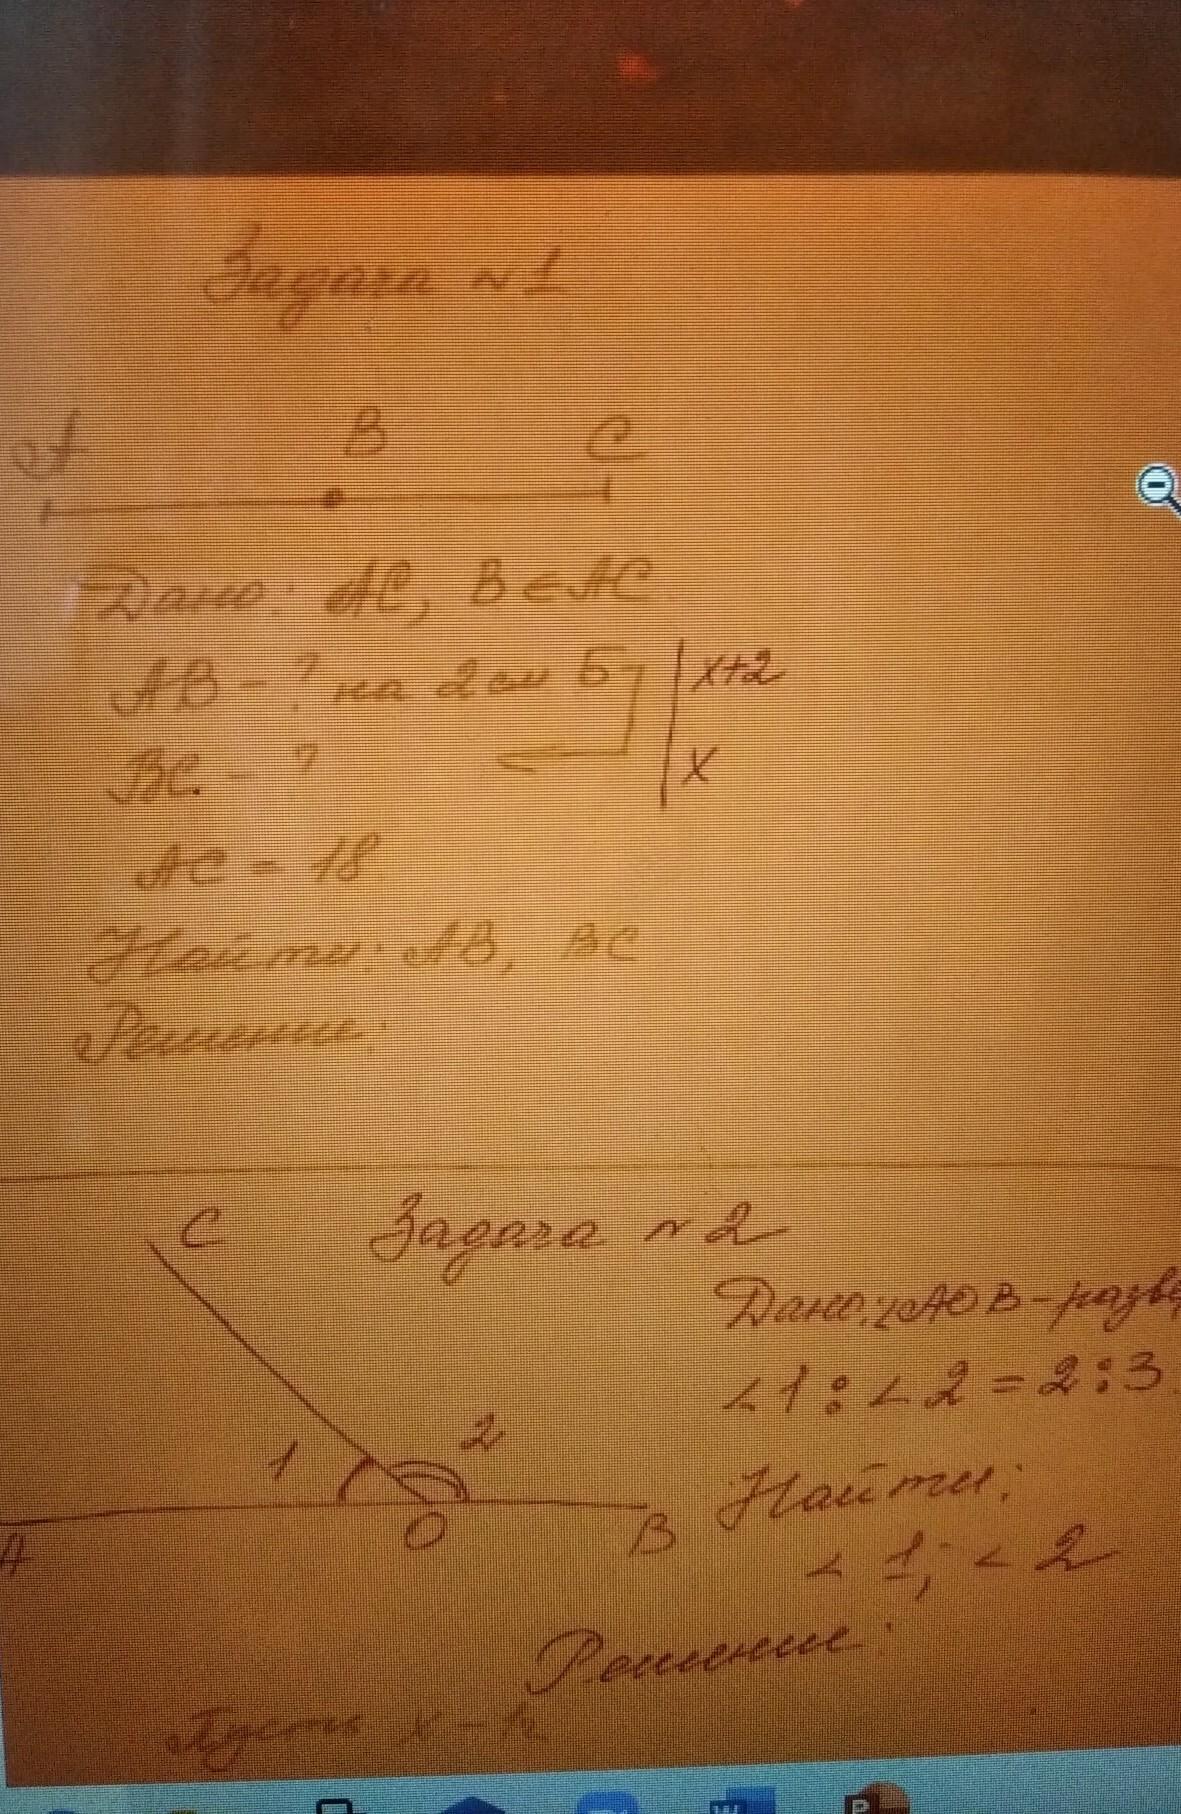 Задача №1
A B C
Дано: AC, B ∈ AC.
AB - ? на 2 см Б | x+2
BC - ? | x
AC = 18
Найти: AB, BC
Решение:
C Задача №2
Дано: ∠AOB - разве
∠1 : ∠2 = 2 : 3.
1 2
Найти:
A O B
∠1; ∠2
Решение:
Пусть x - к
W
P